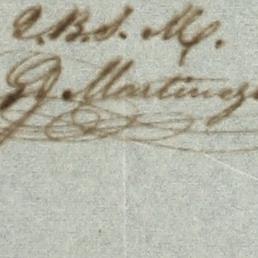 Q.B.S.M.
G Martinez